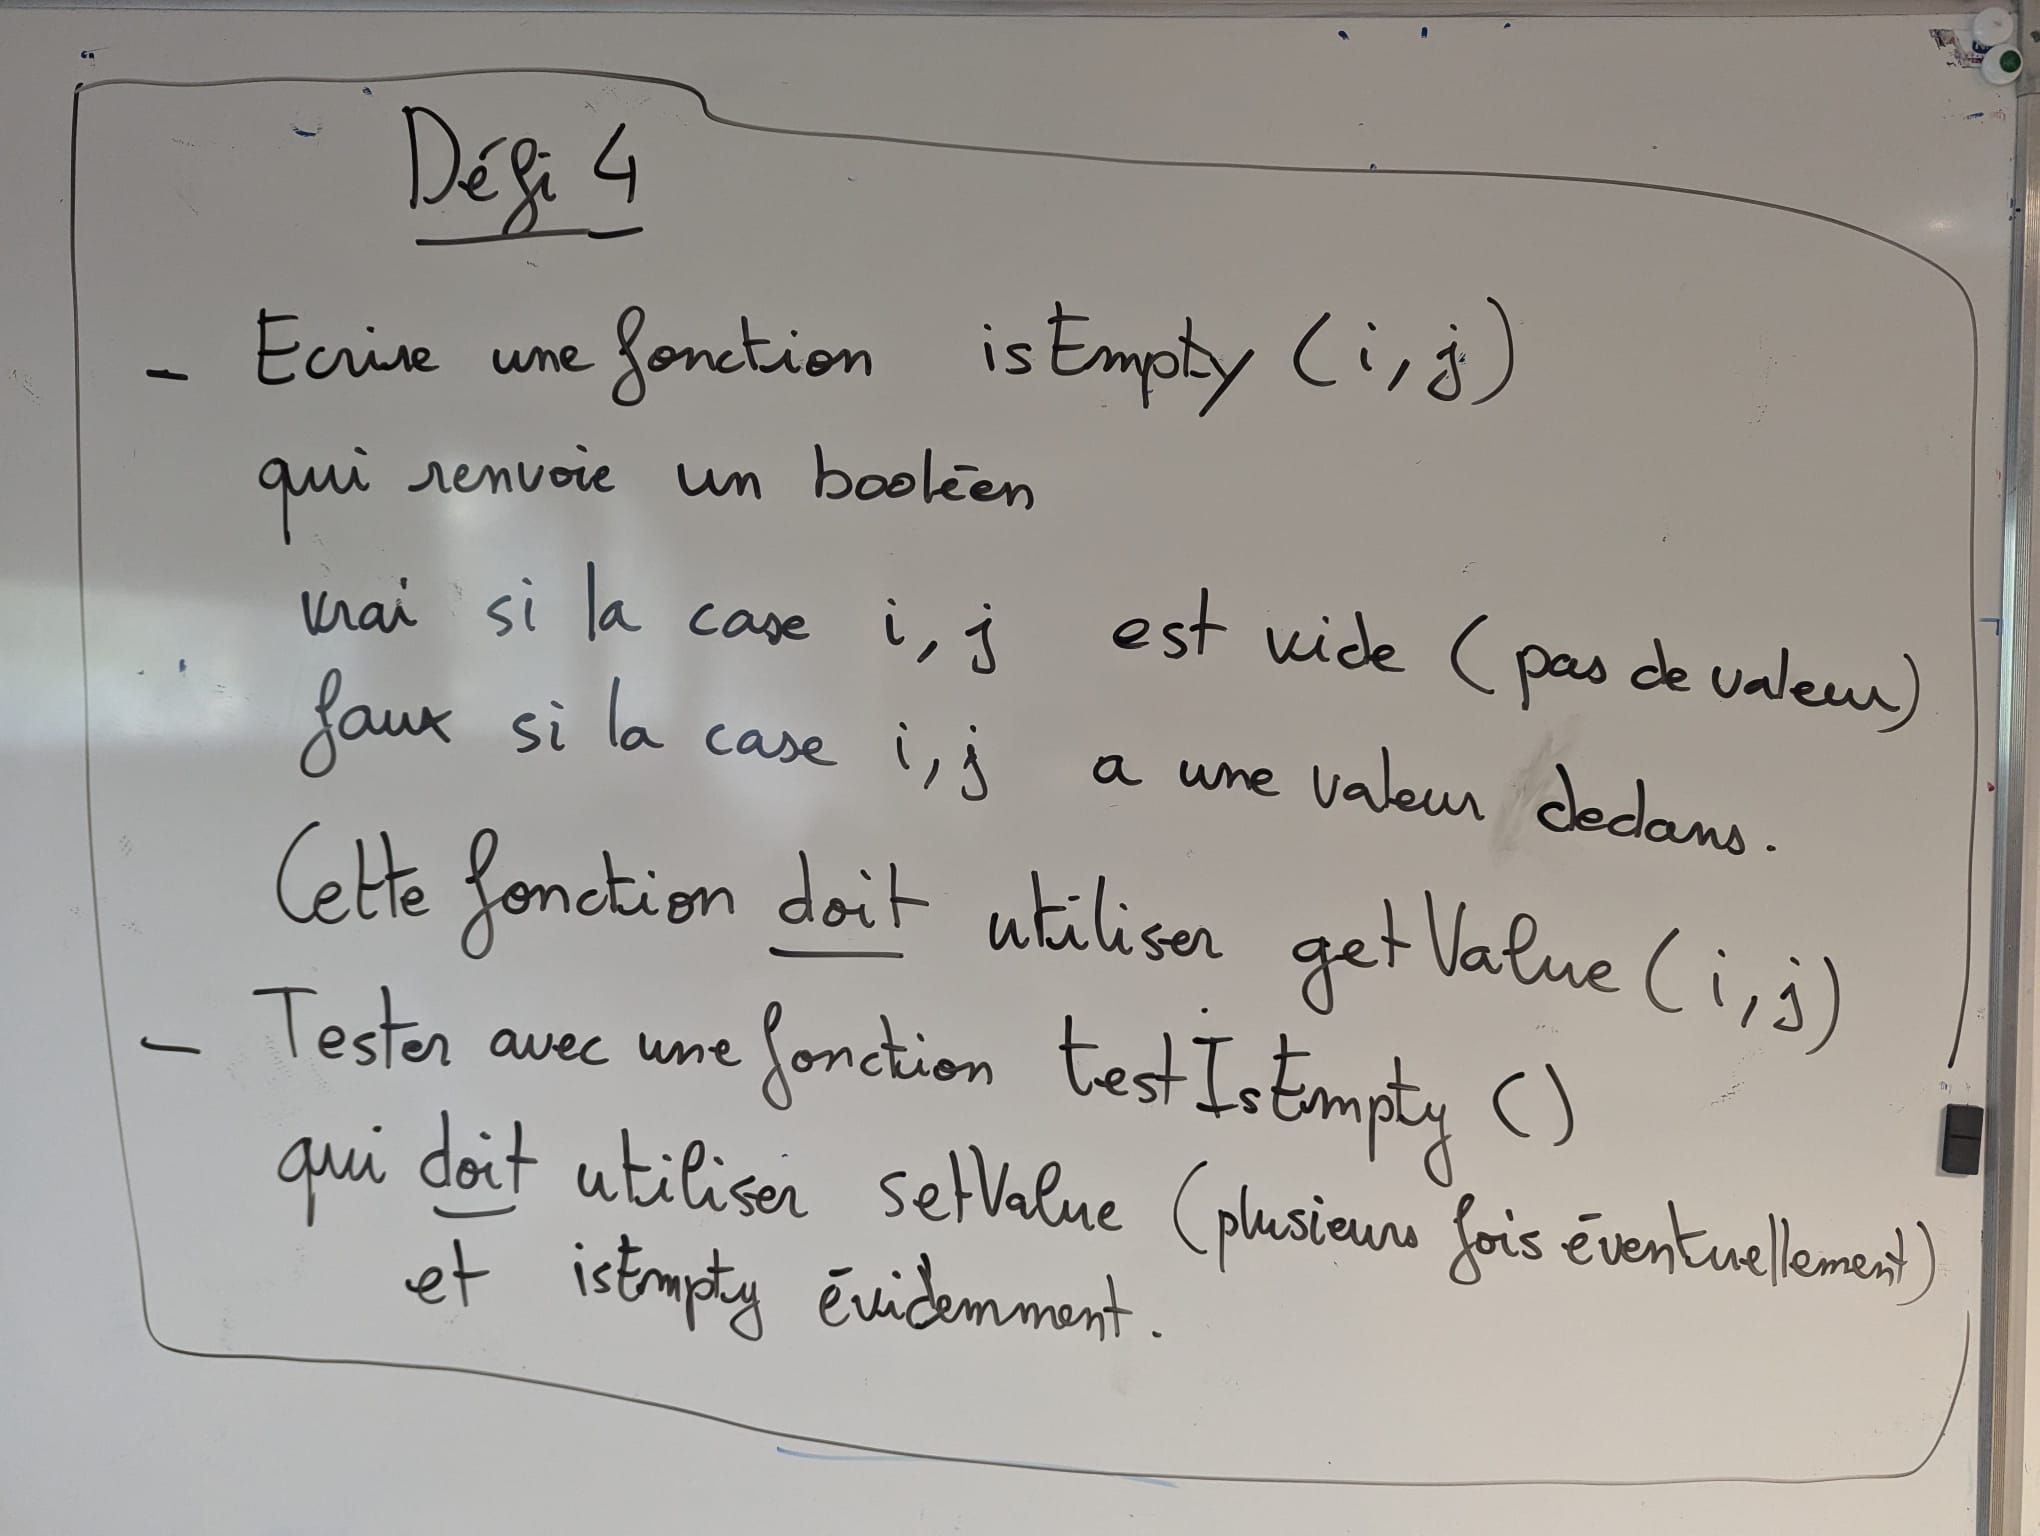 Défi 4
- Ecrire une fonction isEmpty (i,j)
qui renvoie un booléen
vrai si la case i, j est vide (pas de valeur)
faux si la case i, j a une valeur dedans.
Cette fonction doit utiliser getValue (i,j)
- Tester avec une fonction testIsEmpty ()
qui doit utiliser setValue (plusieurs fois éventuellement)
et isEmpty évidemment.